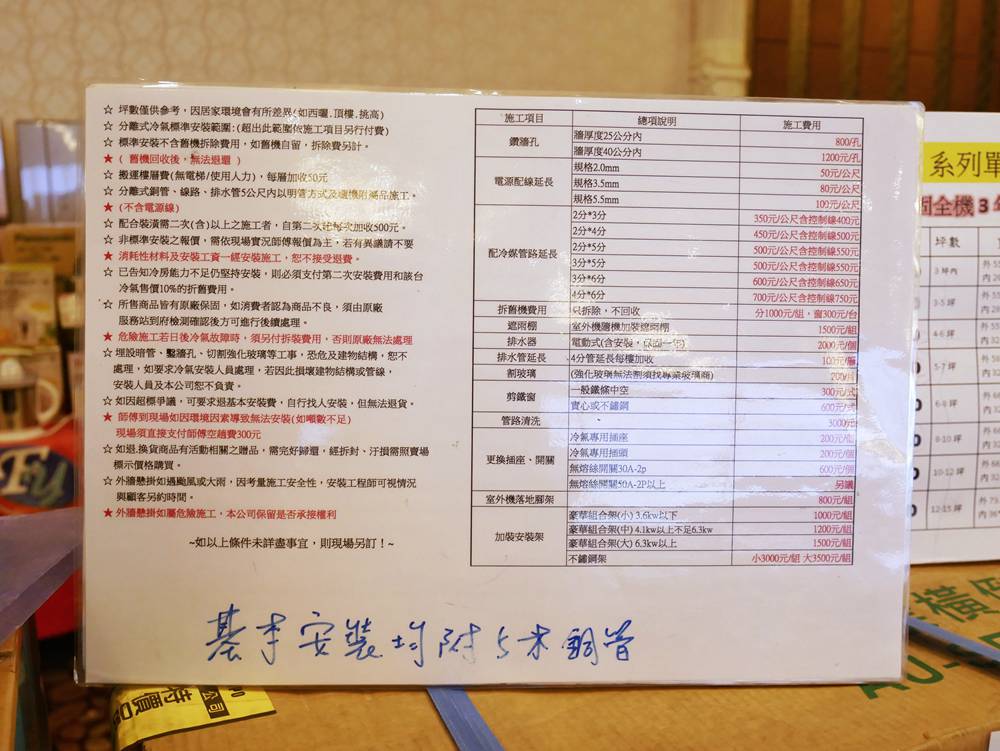 ☆ 坪數僅供參考，因居家環境會有所差異(如西曬.頂樓.挑高)
☆ 分離式冷氣標準安裝範圍:(超出此範圍依施工項目另行付費)
☆ 標準安裝不含舊機拆除費用，如舊機自留，拆除費另計。
★ ( 舊機回收後，無法退還 )
☆ 搬運樓層費(無電梯/使用人力)，每層加收50元
☆ 分離式銅管、線路、排水管5公尺內以明管方式及牆機附屬品施工。
★ (不含電源線)
☆ 配合裝潢需二次(含)以上之施工者，自第二次起每次加收500元。
☆ 非標準安裝之報價，需依現場實況師傅報價為主，若有異議請不要
★ 消耗性材料及安裝工資一經安裝施工，恕不接受退費。
☆ 已告知冷房能力不足仍堅持安裝，則必須支付第二次安裝費用和該台
冷氣售價10%的折舊費用。
☆ 所售商品皆有原廠保固，如消費者認為商品不良，須由原廠
服務站到府檢測確認後方可進行後續處理。
★ 危險施工若日後冷氣故障時，須另付拆裝費用，否則原廠無法處理
☆ 埋設暗管、鑿牆孔、切割強化玻璃等工事，恐危及建物結構，恕不
處理，如要求冷氣安裝人員處理，若因此損壞建物結構或管線，
安裝人員及本公司恕不負責。
☆ 如因超標爭議，可要求退基本安裝費，自行找人安裝，但無法退貨。
★ 師傅到現場如因環境因素導致無法安裝(如噸數不足)
現場須直接支付師傅空趟費300元
☆ 如退.換貨商品有活動相關之贈品，需完好歸還，經拆封、汙損需照賣場
標示價格購買。
☆ 外牆懸掛如遇颱風或大雨，因考量施工安全性，安裝工程師可視情況
與顧客另約時間。
★ 外牆懸掛如屬危險施工，本公司保留是否承接權利
~如以上條件未詳盡事宜，則現場另訂！~
施工項目 總項說明 施工費用
鑽牆孔 牆厚度25公分內 800/孔
牆厚度40公分內 1200元/孔
電源配線延長 規格2.0mm 50元/公尺
規格3.5mm 80元/公尺
規格5.5mm 100元/公尺
配冷媒管路延長 2分*3分 350元/公尺含控制線400元
2分*4分 450元/公尺含控制線500元
2分*5分 500元/公尺含控制線550元
3分*5分 500元/公尺含控制線550元
3分*6分 600元/公尺含控制線650元
4分*6分 700元/公尺含控制線750元
拆舊機費用 只拆除，不回收 分1000元/組，窗300元/台
遮雨棚 室外機隨機加裝遮雨棚 1500元/組
排水器 電動式(含安裝，保固一年) 2000元/個
排水管延長 4分管延長每樓加收 100元/層
割玻璃 (強化玻璃無法割須找專業玻璃商) 200/片
剪鐵窗 一般鐵條中空 300元/式
實心或不鏽鋼 600元/式
管路清洗 3000元
更換插座、開關 冷氣專用插座 200元/個
冷氣專用插頭 200元/個
無熔絲開關30A-2p 600元/個
無熔絲開關50A-2P以上 另議
室外機落地腳架 800元/組
加裝安裝架 豪華組合架(小) 3.6kw以下 1000元/組
豪華組合架(中) 4.1kw以上不足6.3kw 1200元/組
豪華組合架(大) 6.3kw以上 1500元/組
不鏽鋼架 小3000元/組 大3500元/組
基本安裝均附5米銅管
系列單
固全機3年
坪數
3坪內
3-5 坪
4-6 坪
5-7 坪
6-8 坪
8-10 坪
10-12 坪
12-15 坪
公司
特價品